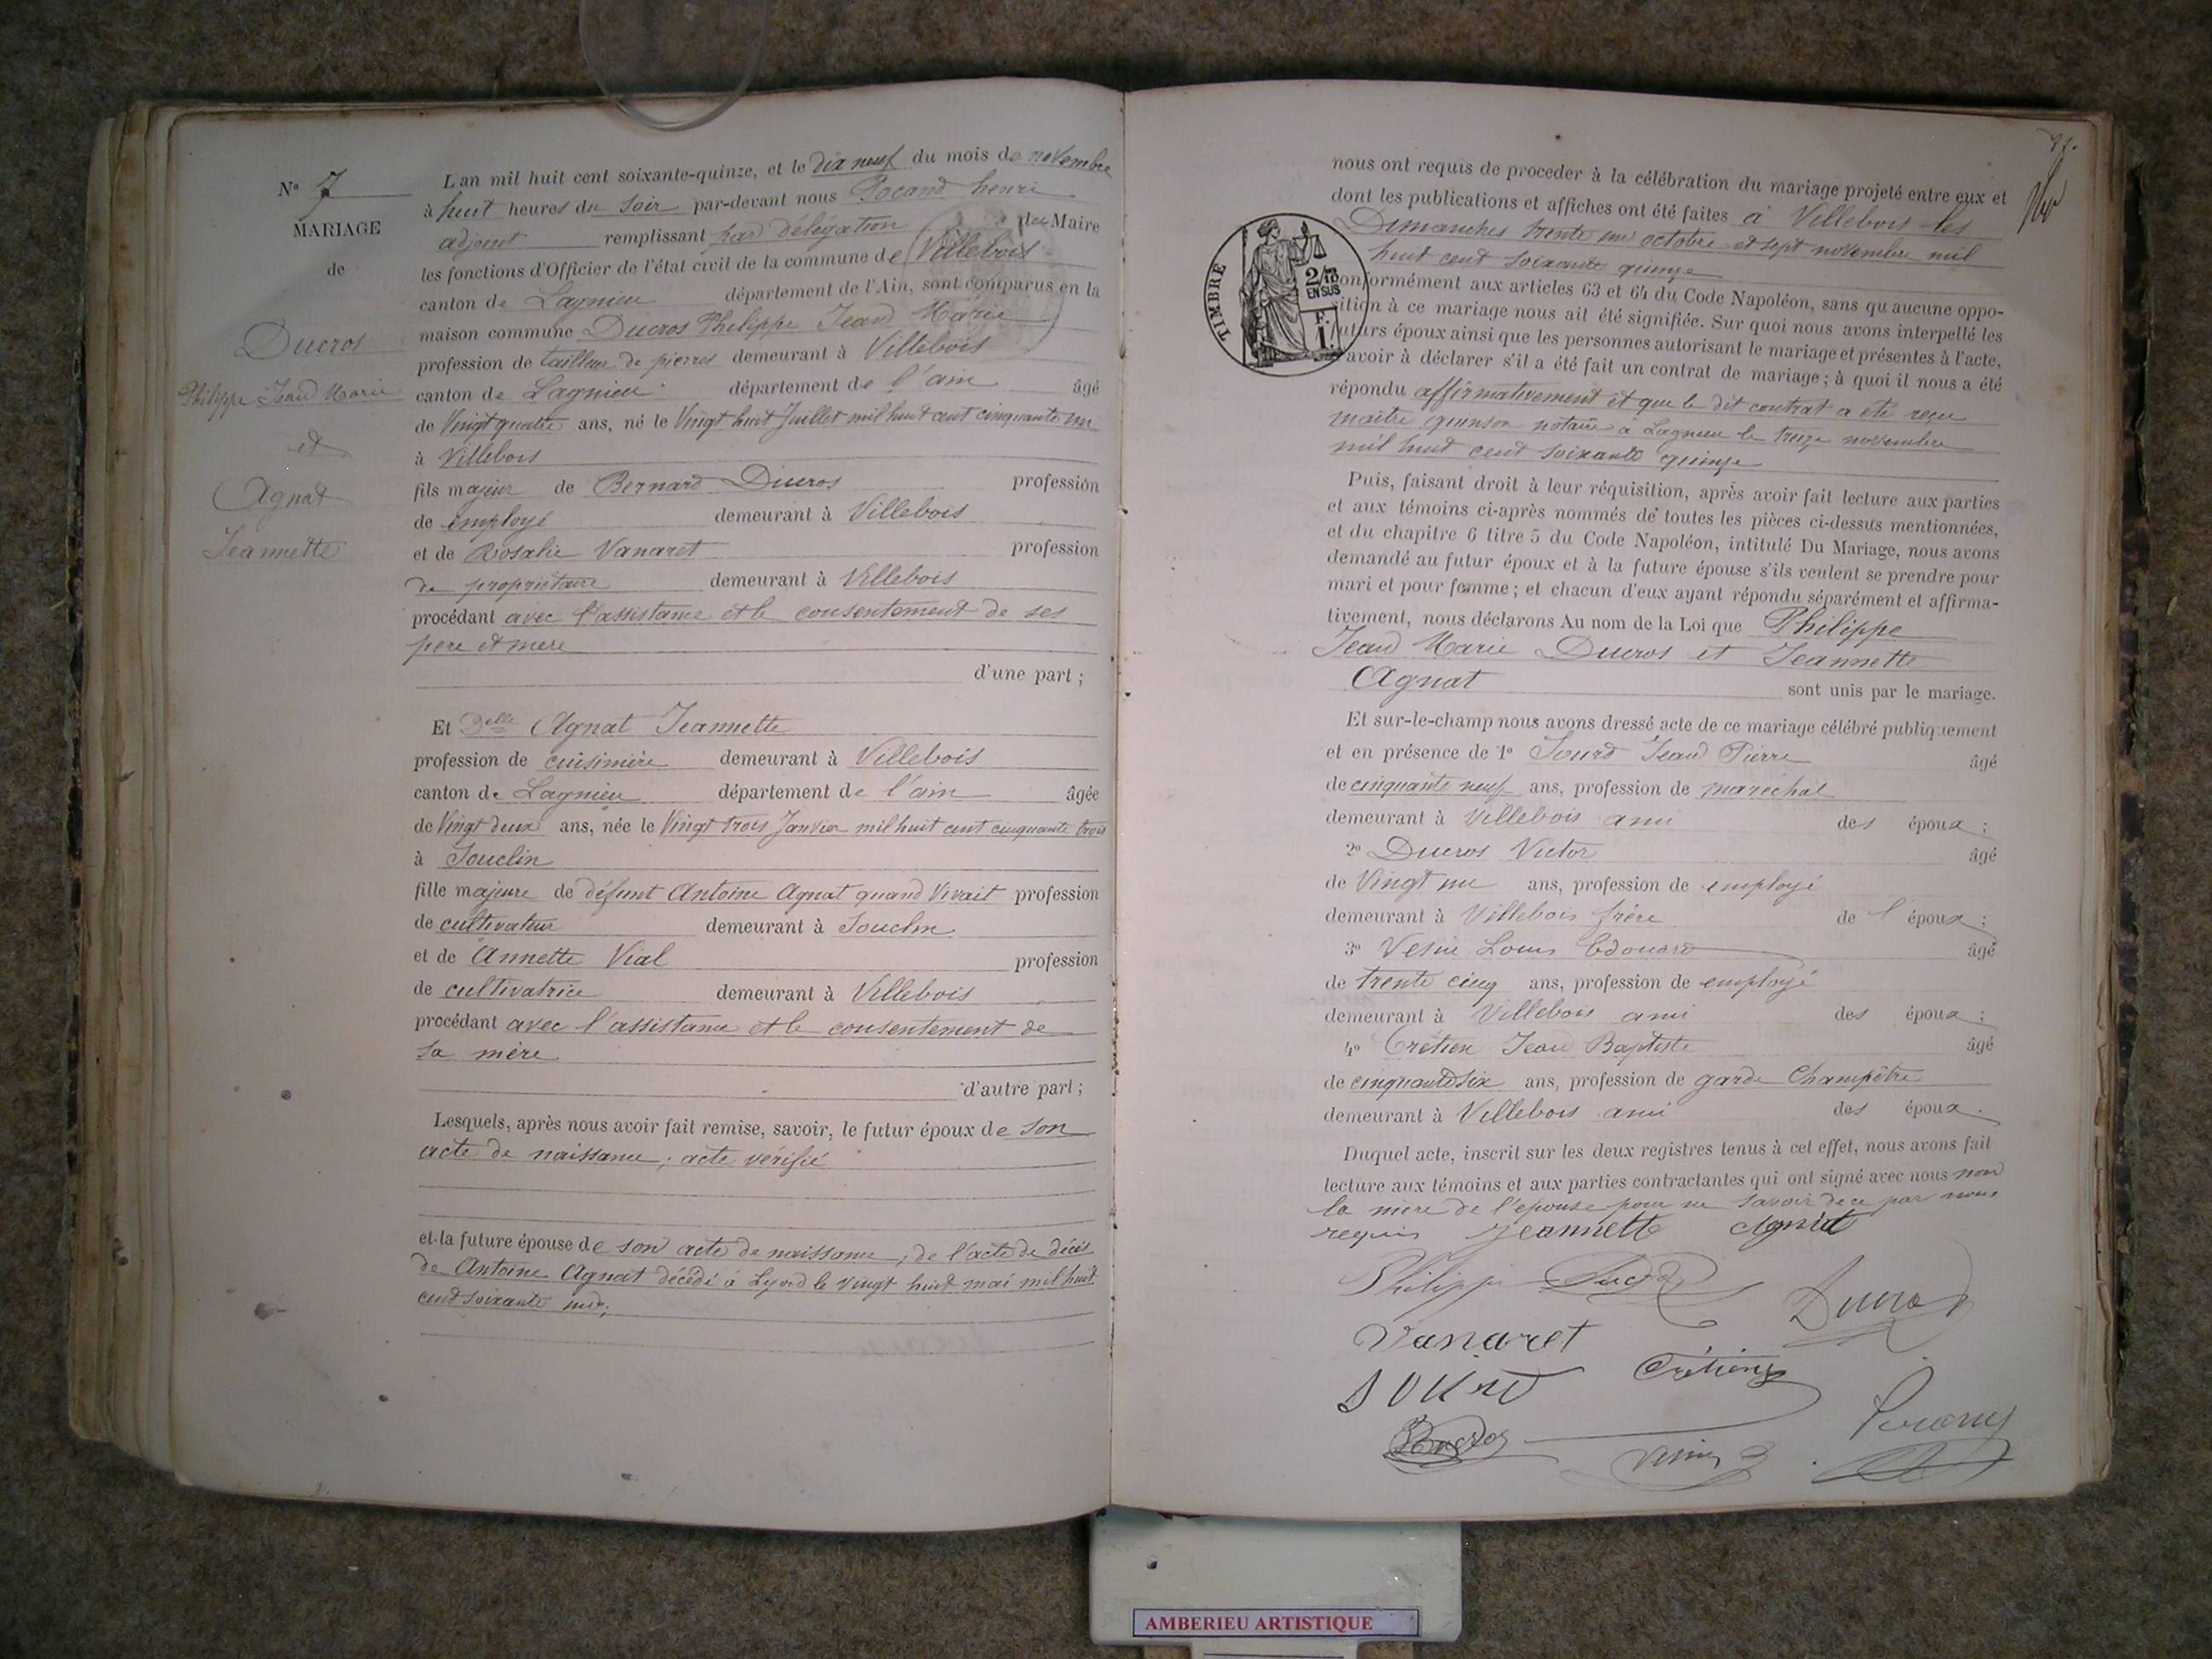 N° 7
MARIAGE
de
Ducros
Philippe Jean Marie
et
Agnat
Jeannette
L'an mil huit cent soixante-quinze, et le dix neuf du mois de novembre
à huit heures du soir par-devant nous Pocand henri
adjoint remplissant par délégation du Maire
les fonctions d'Officier de l'état civil de la commune de Villebois
canton de Lagnieu département de l'Ain, sont comparus en la
maison commune Ducros Philippe Jean Marie
profession de tailleur de pierres demeurant à Villebois
canton de Lagnieu département de l'ain âgé
de Vingt quatre ans, né le Vingt huit Juillet mil huit cent cinquante un
à Villebois
fils majeur de Bernard Ducros profession
de employé demeurant à Villebois
et de Rosalie Vanaret profession
de propriétaire demeurant à Villebois
procédant avec l'assistance et le consentement de ses
pere et mere
d'une part ;
Et Delle Agnat Jeannette
profession de cuisinière demeurant à Villebois
canton de Lagnieu département de l'ain âgée
de Vingt deux ans, née le Vingt trois Janvier mil huit cent cinquante trois
à Souclin
fille majeure de défunt Antoine Agnat quand Vivait profession
de cultivateur demeurant à Souclin
et de Annette Vial profession
de cultivatrice demeurant à Villebois
procédant avec l'assistance et le consentement de
sa mère
d'autre part ;
Lesquels, après nous avoir fait remise, savoir, le futur époux de son
acte de naissance ; acte vérifié
et la future épouse de son acte de naissance, de l'acte de décès
de Antoine Agnat décédé à Lyon le vingt huit mai mil huit
cent soixante
nous ont requis de proceder à la célébration du mariage projeté entre eux et
dont les publications et affiches ont été faites à Villebois les
Dimanches trente un octobre et sept novembre mil
huit cent soixante quinze
TIMBRE
2/10
EN SUS
F.
1.
conformément aux articles 63 et 64 du Code Napoléon, sans qu'aucune oppo-
sition à ce mariage nous ait été signifiée. Sur quoi nous avons interpellé les
futurs époux ainsi que les personnes autorisant le mariage et présentes à l'acte,
d'avoir à déclarer s'il a été fait un contrat de mariage ; à quoi il nous a été
répondu affirmativement et que le dit contrat a été reçu
maître quinson notaire à Lagnieu le treize novembre
mil huit cent soixante quinze
Puis, faisant droit à leur réquisition, après avoir fait lecture aux parties
et aux témoins ci-après nommés de toutes les pièces ci-dessus mentionnées,
et du chapitre 6 titre 5 du Code Napoléon, intitulé Du Mariage, nous avons
demandé au futur époux et à la future épouse s'ils veulent se prendre pour
mari et pour femme ; et chacun d'eux ayant répondu séparément et affirma-
tivement, nous déclarons Au nom de la Loi que Philippe
Jean Marie Ducros et Jeannette
Agnat sont unis par le mariage.
Et sur-le-champ nous avons dressé acte de ce mariage célébré publiquement
et en présence de 1° Sourd Jean Pierre âgé
de cinquante neuf ans, profession de maréchal
demeurant à Villebois ami des époux ;
2° Ducros Victor âgé
de Vingt un ans, profession de employé
demeurant à Villebois frère de l'époux ;
3° Vesin Louis Edouard âgé
de trente cinq ans, profession de employé
demeurant à Villebois ami des époux ;
4° Crétien Jean Baptiste âgé
de cinquante six ans, profession de garde Champêtre
demeurant à Villebois ami des époux.
Duquel acte, inscrit sur les deux registres tenus à cet effet, nous avons fait
lecture aux témoins et aux parties contractantes qui ont signé avec nous non
la mère de l'épouse pour ne savoir de ce par nous
requis Jeannette Agnat
Philippe Ducros Ducros
Vanaret
Sourd Crétien
AMBERIEU ARTISTIQUE